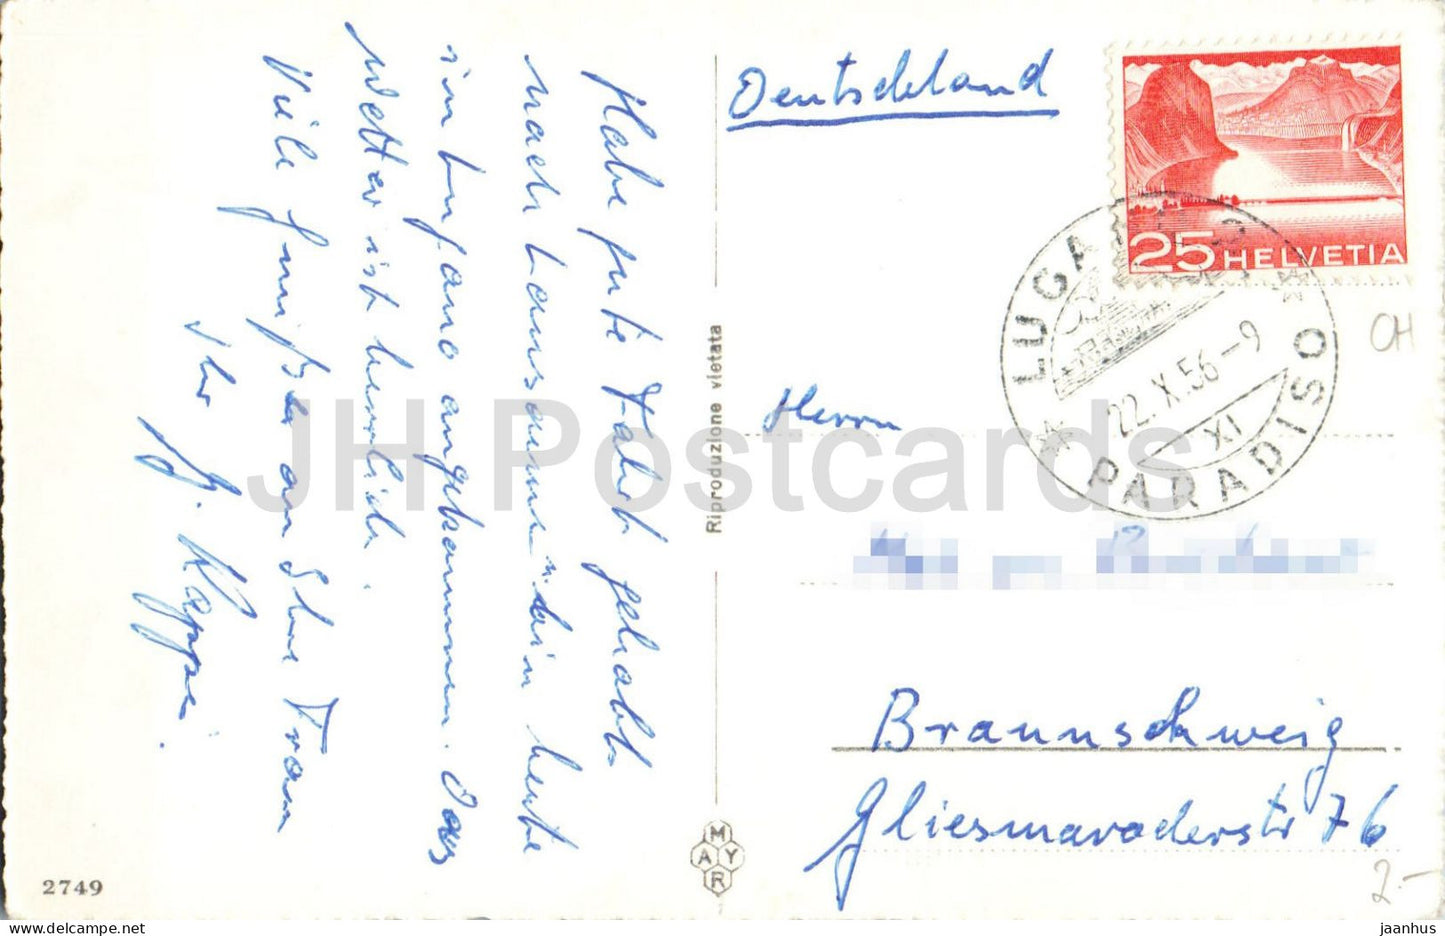 Habe gute Fahrt gehabt
nach Lausanne
heute
in Lugano angekommen. Das
Wetter ist herrlich.
Viele Grüße an Ihre Frau
Ihr
Deutschland
25 HELVETIA
LUGANO 3
22.X.56-9
XI
PARADISO
CH
Herrn
Braunschweig
Gliesmaroderstr 76
Riproduzione vietata
MAYR
2749
2.-
JH Postcards
www.delcampe.net
jaanhus